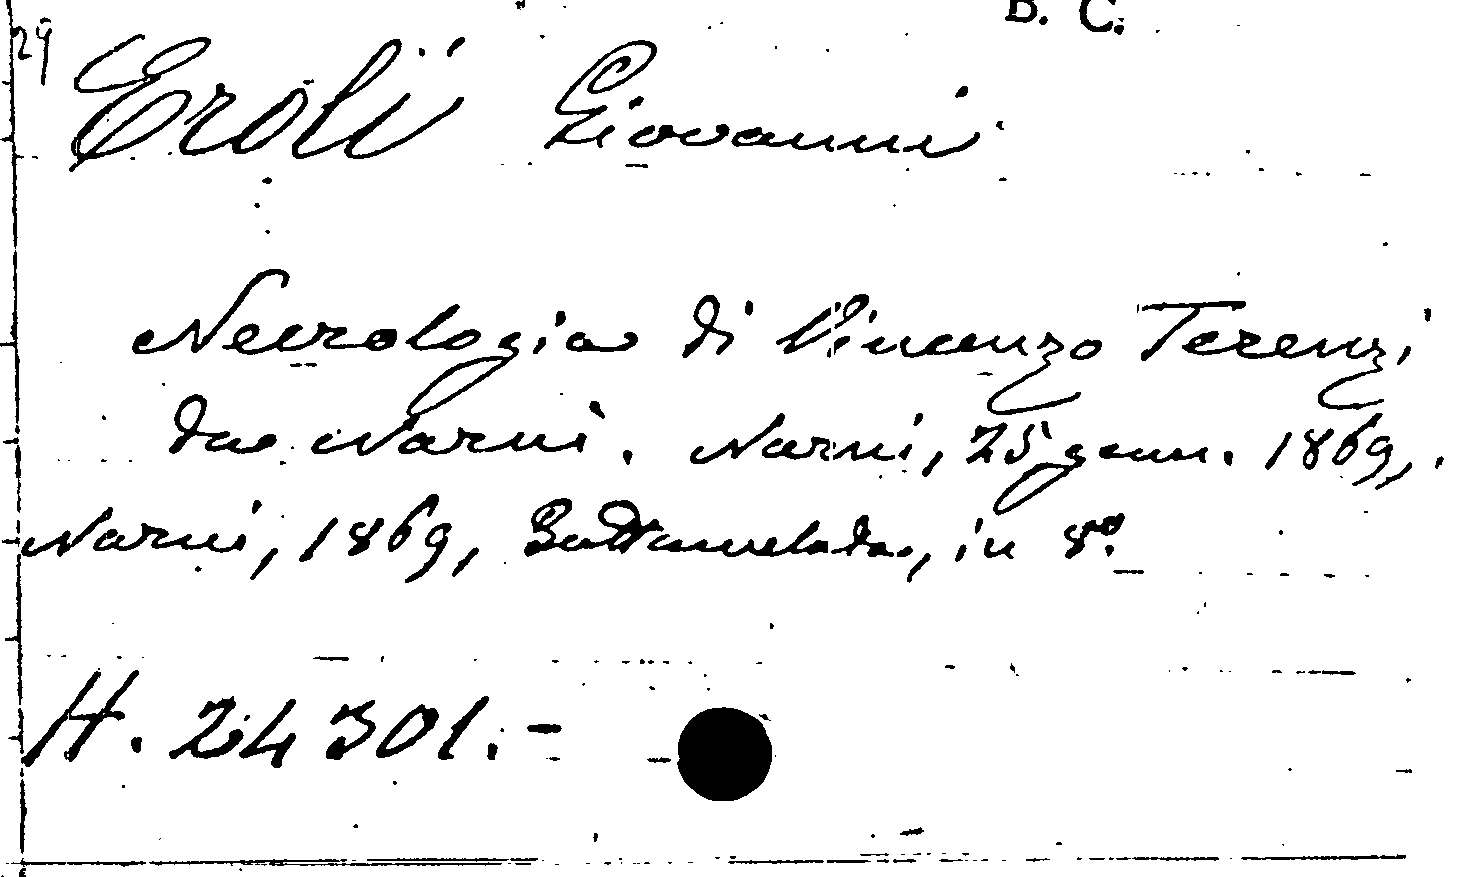 B. C.
29
Erolï Giovanni
Necrologia di Vincenzo Terenzi
da Narni. Narni, 25 genn. 1869,.
Narni, 1869, Gattamelata, in 8º.
H. 24301.-